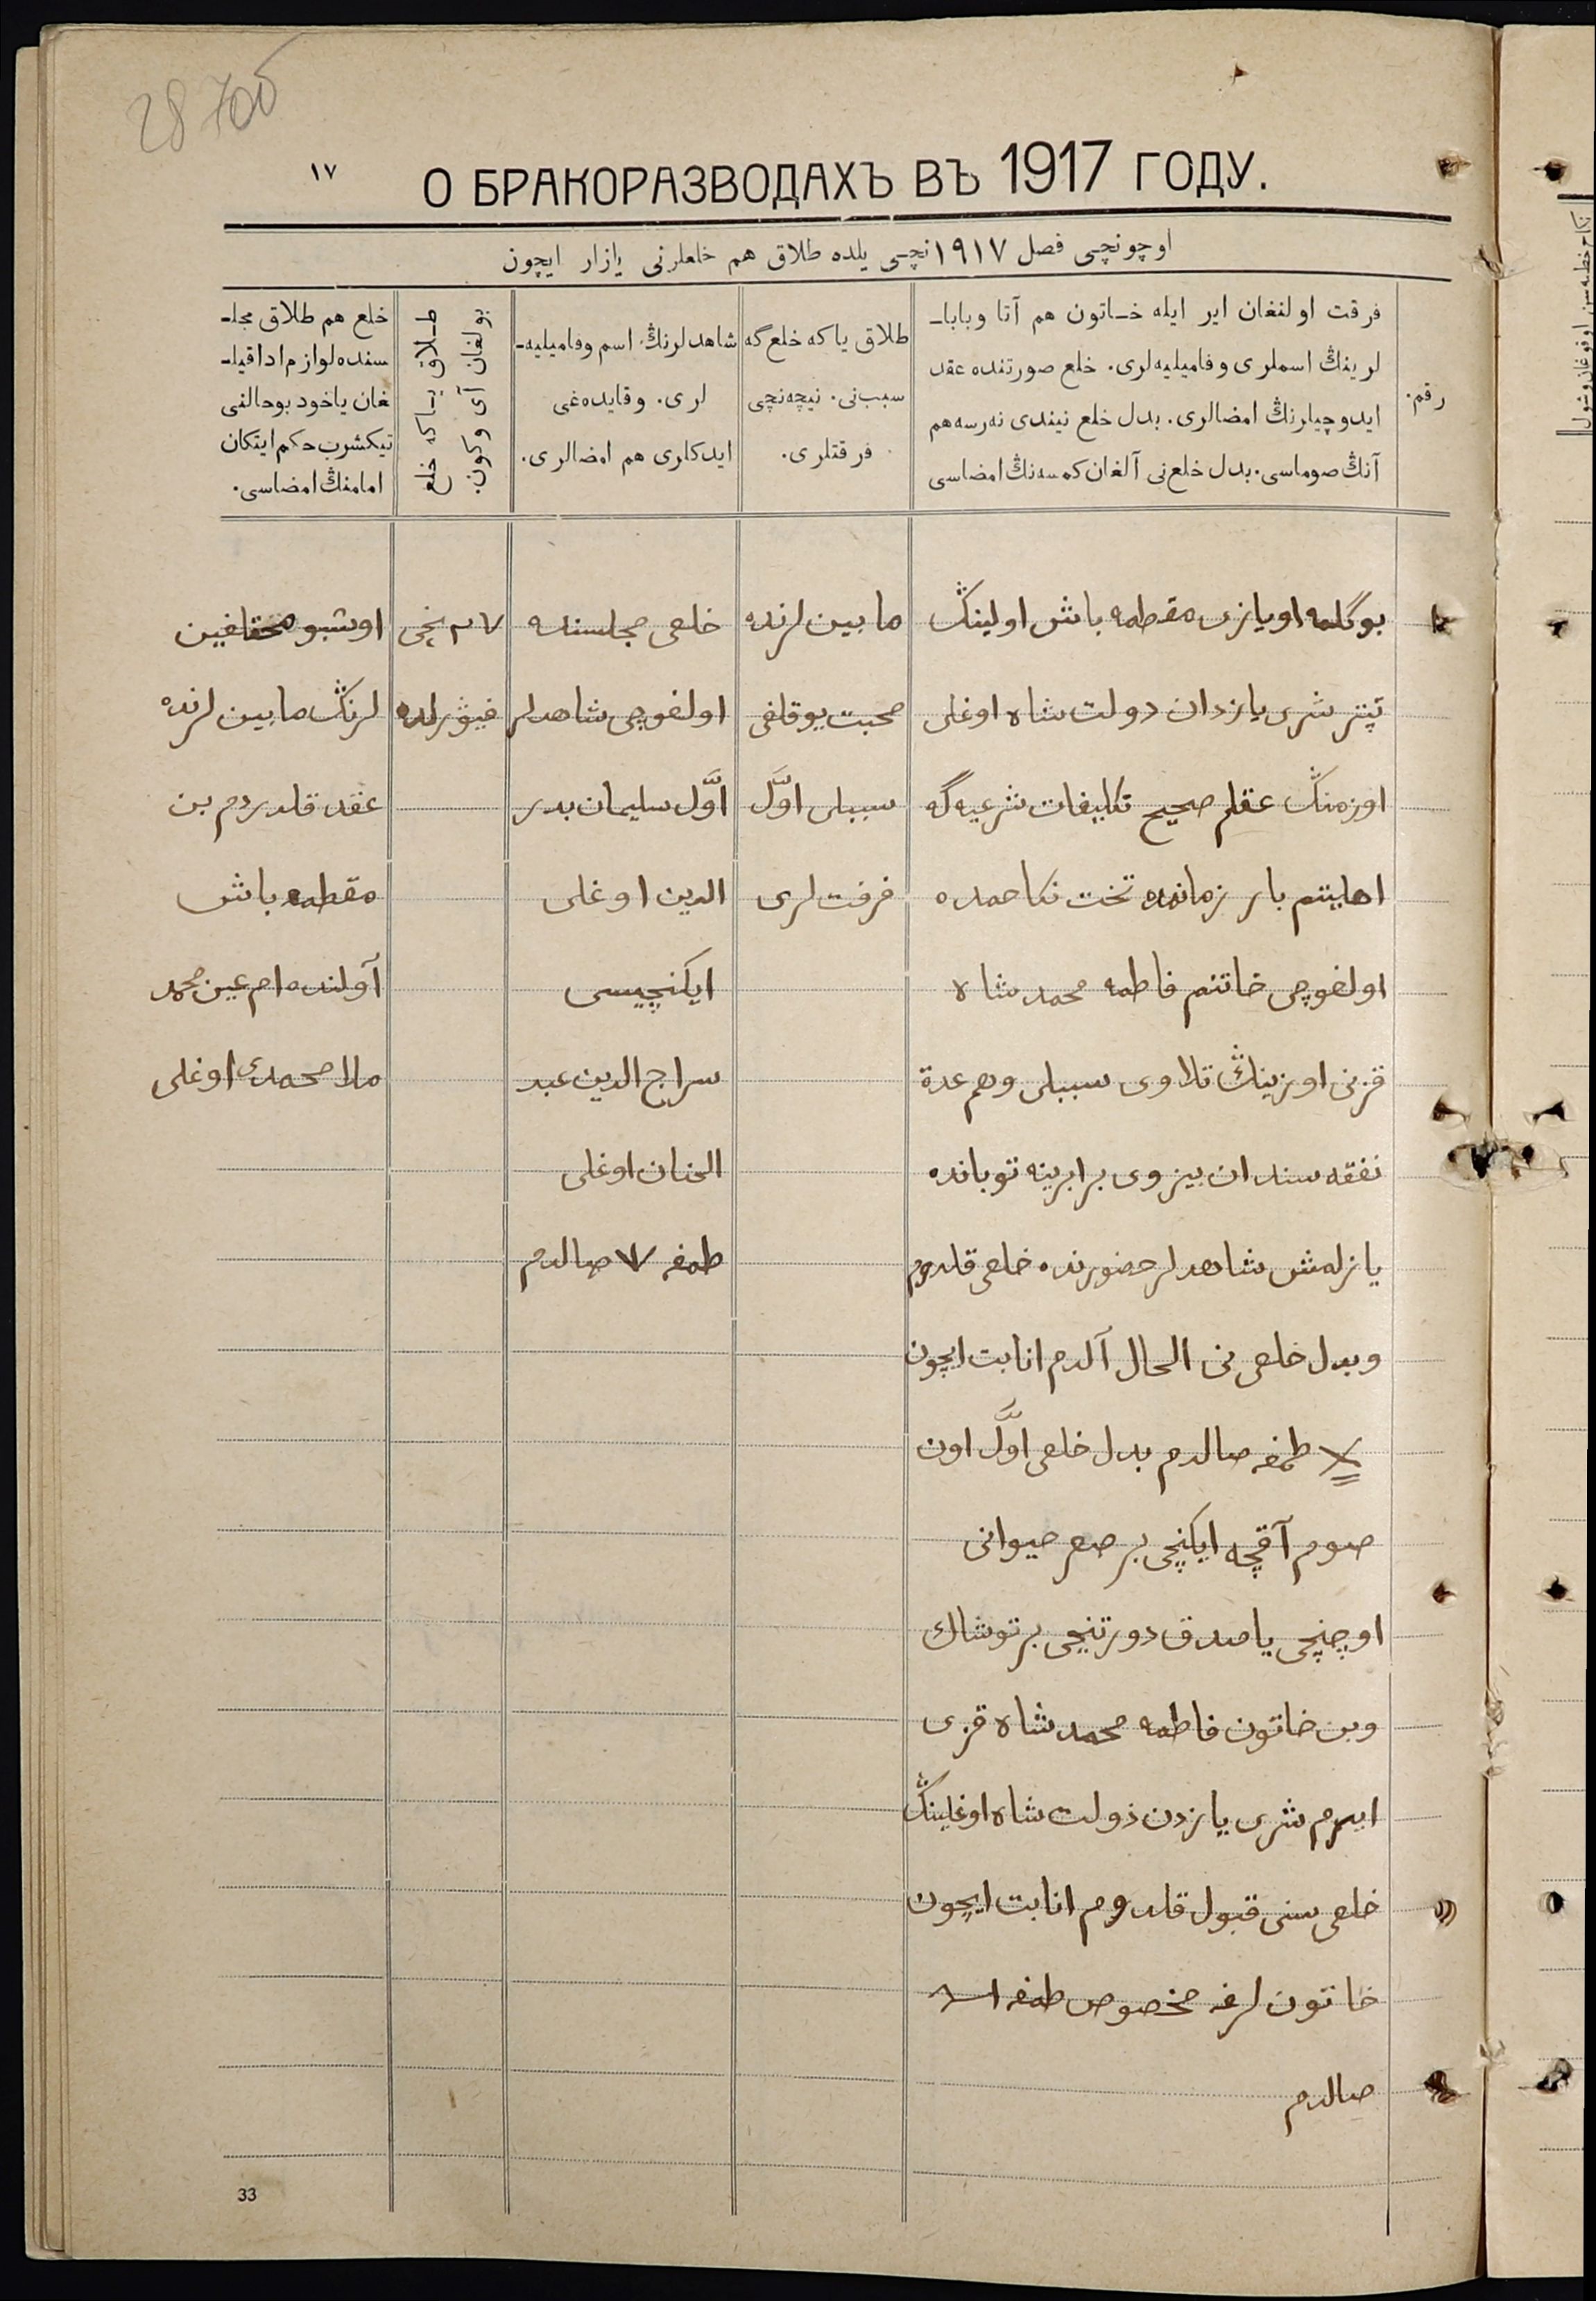 28 700
١٧
О БРАКОРАЗВОДАХЪ ВЪ 1917 ГОДУ.
اوچونچی فصل ١٩١٧نچی یلده طلاق هم خلعلرنی یازار ایچون
رقم.
فرقت اولنغان ایر ایله خـاتون هم آتا وبابا-
لرینڭ اسملری وفامیلیه‌لری. خلع صورتنده عقد
ایدوچیلرنڭ امضالری. بدل خلع نیندی نه‌رسه هم
آنڭ صوماسی. بدل خلع‌نی آلغان کمسه‌نڭ امضاسی
طلاق یا که خلع گه
سبب‌نی. نیچه‌نچی
فرقتلری.
شاهدلرنڭ اسم وفامیلیه-
لری. وقایده‌غی
ایدکلری هم امضالری.
طـلاق یـا که خلع
بولغان آی وکون.
خلع هم طلاق مجلـ
سنده لوازم ادا قیلـ
غان یاخود بو حالنی
تیکشرب حکم ایتکان
امامنڭ امضاسی.
١
بوگلمه اویازی مقطمه باش اولینڭ
تپتر شری یازدان دولت شاه اوغلی
اوزمنڭ عقلم صحیح تکلیفات شرعیه‌گه
اهلیتم بار زمانمده تحت نکاحمده
اولغوچی خاتنم فاطمه محمد شاه
قزنی اوزینڭ تلاوی سببلی وهم عدة
نفقه سندان بیزوی برابرینه توبانده
یازلمش شاهدلر حضورنده خلعی قلدوم
وبدل خلعی فی الحال آلدم اثابت ایچون
طمغه صالدم بدل خلعی اوّل اون
صوم آقچه ایکنچی بر صغر حیوانی
اوچنچی یاصدق دورتنچی بر توشاك
وبن خاتون فاطمه محمد شاه قزی
ایرم شری یازدن دولت شاه اوغلینڭ
خلعی سنی قبول قلدوم اثابت ایچون
خاتون لرغه مخصوص طمغه
صالدم
ما بین لرنده
محبت یوقلغی
سببلی اوّل
فرقت لری
خلعی مجلسنده
اولغوچی شاهدلر
اوّل سلیمان بدر
الدین اوغلی
ایکنچیسی
سراج الدین عبد
الحنان اوغلی
طمغه صالدم
٢٧ نچی
فیۋرلده
اوشبو مخالفین
لرنڭ ما بین لرنده
عقد قلدردم بن
مقطمه باش
آولنده امام عین محمد
ملا محمدی اوغلی
33